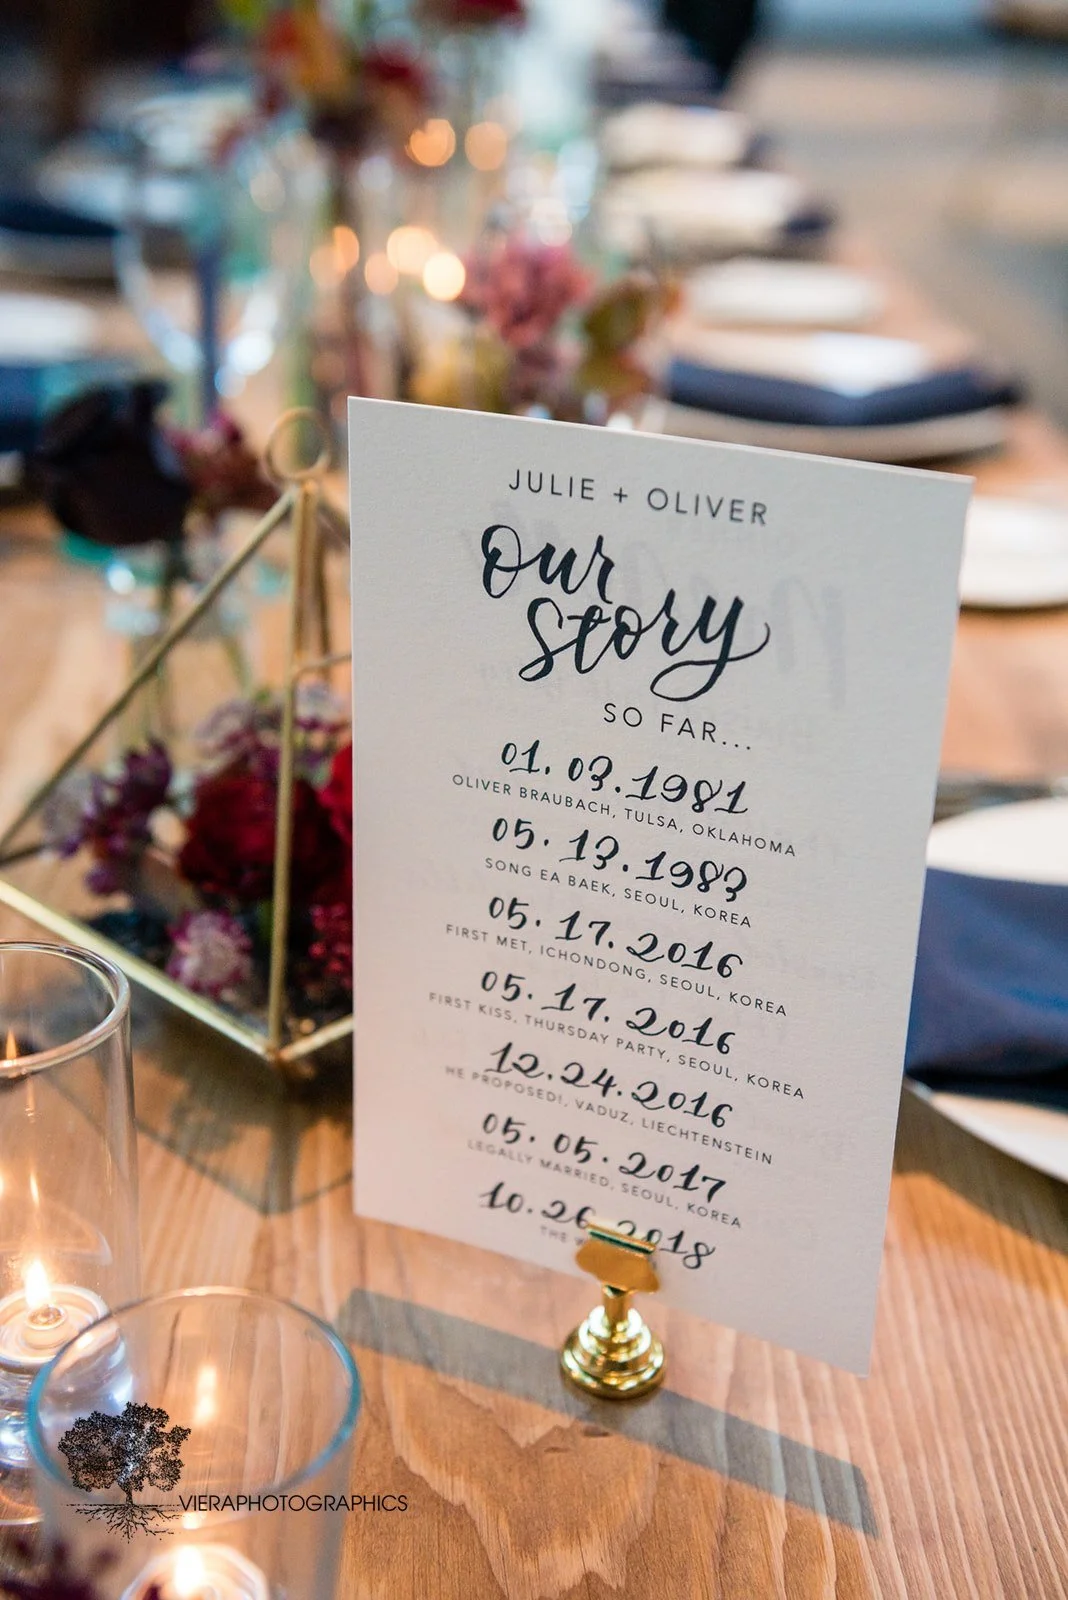 JULIE + OLIVER
our
story
SO FAR...
01.03.1981
OLIVER BRAUBACH, TULSA, OKLAHOMA
05.13.1983
SONG EA BAEK, SEOUL, KOREA
05.17.2016
FIRST MET, ICHONDONG, SEOUL, KOREA
05.17.2016
FIRST KISS, THURSDAY PARTY, SEOUL, KOREA
12.24.2016
HE PROPOSED!, VADUZ, LIECHTENSTEIN
05.05.2017
LEGALLY MARRIED, SEOUL, KOREA
10.26.2018
THE
VIERAPHOTOGRAPHICS